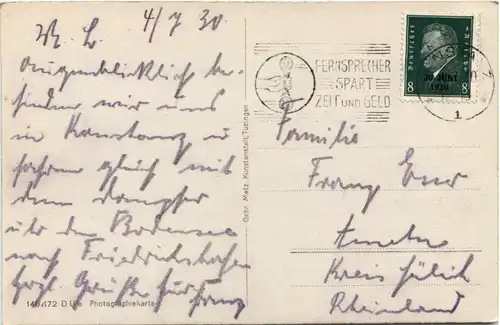 M. L. 4/7 30.
Augenblicklich be-
finden wir uns
in Konstanz u
fahren gleich mit
dem Dampfer
über den Bodensee
nach Friedrichshafen
herzl. Grüße
Gebr. Metz, Kunstanstalt, Tübingen
Photographiekarte
FERNSPRECHER
SPART
ZEIT UND GELD
8 8
30. JUNI
1930
1
Familie
Franz
Kreis Jülich
Rheinland